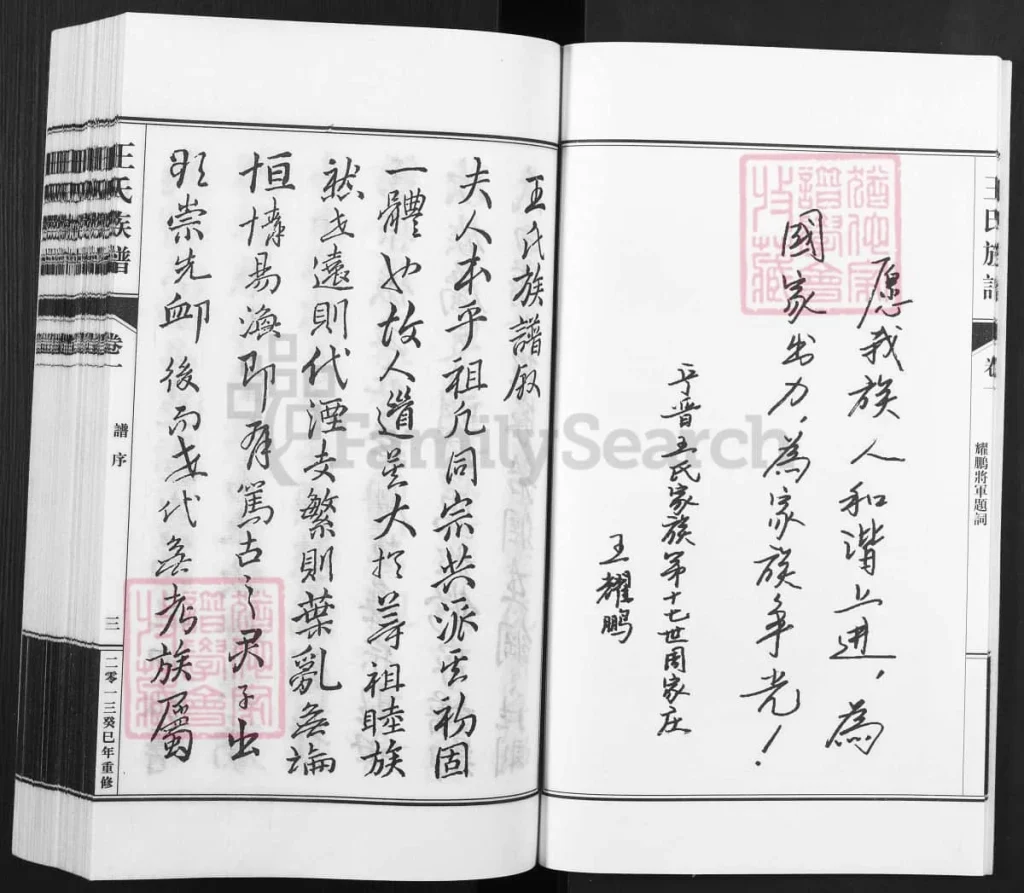 王氏族譜
卷一
耀鵬將軍題詞
愿我族人和谐上进，為
國家出力，為家族争光！
王氏家族第十七世周家庄
王耀鵬
王氏族譜叙
夫人本乎祖凡同宗共派其初固
一體也故人道莫大於尊祖睦族
然世遠則代湮支繁則葉亂無論
恒情易渙即有篤古之君子出
崇先卹後而世代無考族屬
王氏族譜
卷一
譜序
三
二零一三癸巳年重修
FamilySearch